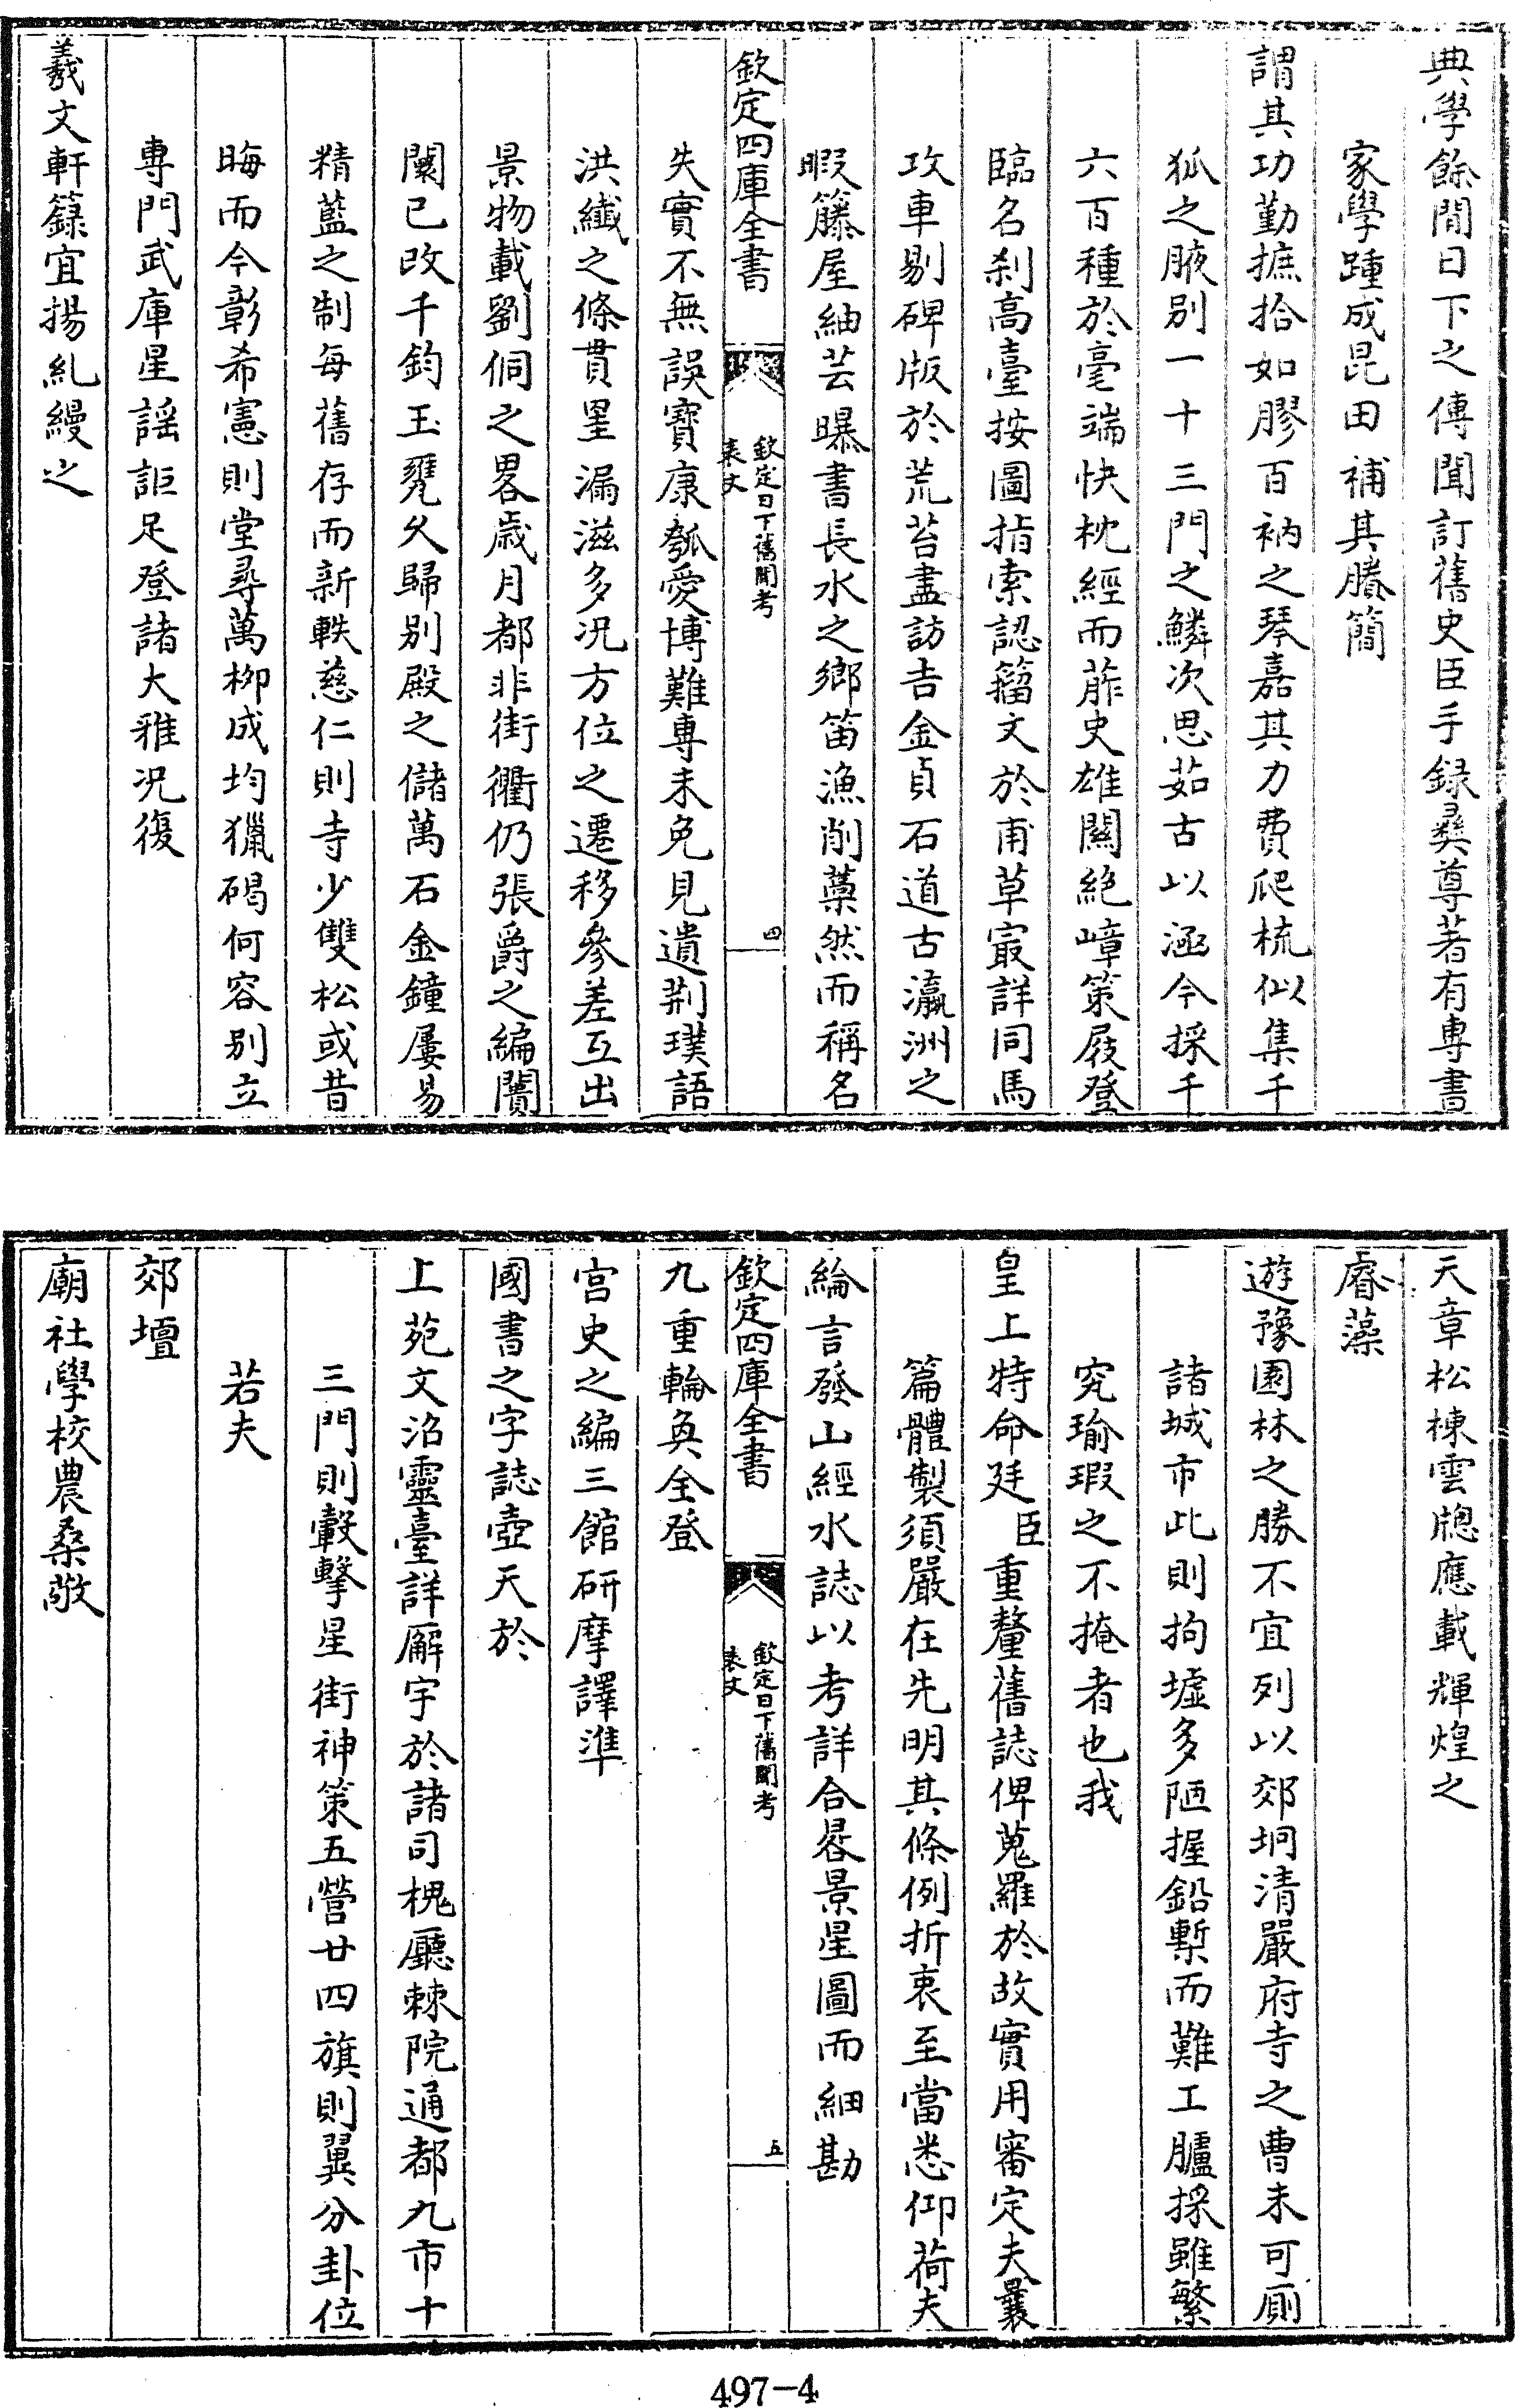 典學餘閒日下之傳聞訂舊史臣手録彛尊著有專書
家學踵成昆田補其賸簡
謂其功勤摭拾如膠百衲之琴嘉其力費爬梳似集千
狐之腋别一十三門之鱗次思茹古以涵今採千
六百種於毫端快枕經而葄史雄關絶嶂策屐登
臨名刹高臺按圖指索認籀文於甫草㝡詳同馬
攻車剔碑版於荒苔盡訪吉金貞石道古瀛洲之
暇籐屋紬芸曝書長水之鄉笛漁削藁然而稱名
欽定四庫全書
欽定日下舊聞考
表文
四
失實不無誤寳康瓠愛博難專未免見遺荆璞語
洪纎之條貫罣漏滋多况方位之遷移參差互出
景物載劉侗之畧歲月都非街衢仍張爵之編闤
闠已改千鈞玉甕久歸别殿之儲萬石金鐘屢易
精藍之制每舊存而新軼慈仁則寺少雙松或昔
晦而今彰希憲則堂尋萬栁成均獵碣何容别立
專門武庫星謡詎足登諸大雅况復
羲文軒籙宜揚糺縵之
天章松棟雲牕應載輝煌之
睿藻
遊豫園林之勝不宜列以郊坰清嚴府寺之曹未可厠
諸城市此則拘墟多陋握鉛槧而難工臚採雖繁
究瑜瑕之不掩者也我
皇上特命廷臣重釐舊誌俾蒐羅於故實用審定夫曩
篇體製須嚴在先明其條例折衷至當悉仰荷夫
綸言發山經水誌以考詳合晷景星圖而細勘
欽定四庫全書
欽定日下舊聞考
表文
五
九重輪奐全登
宫史之編三館研摩譯準
國書之字誌壺天於
上苑文沿靈臺詳廨宇於諸司槐廳棘院通都九市十
三門則轂擊星街神策五營廿四旗則翼分卦位
若夫
郊壇
廟社學校農桑敞
497-4